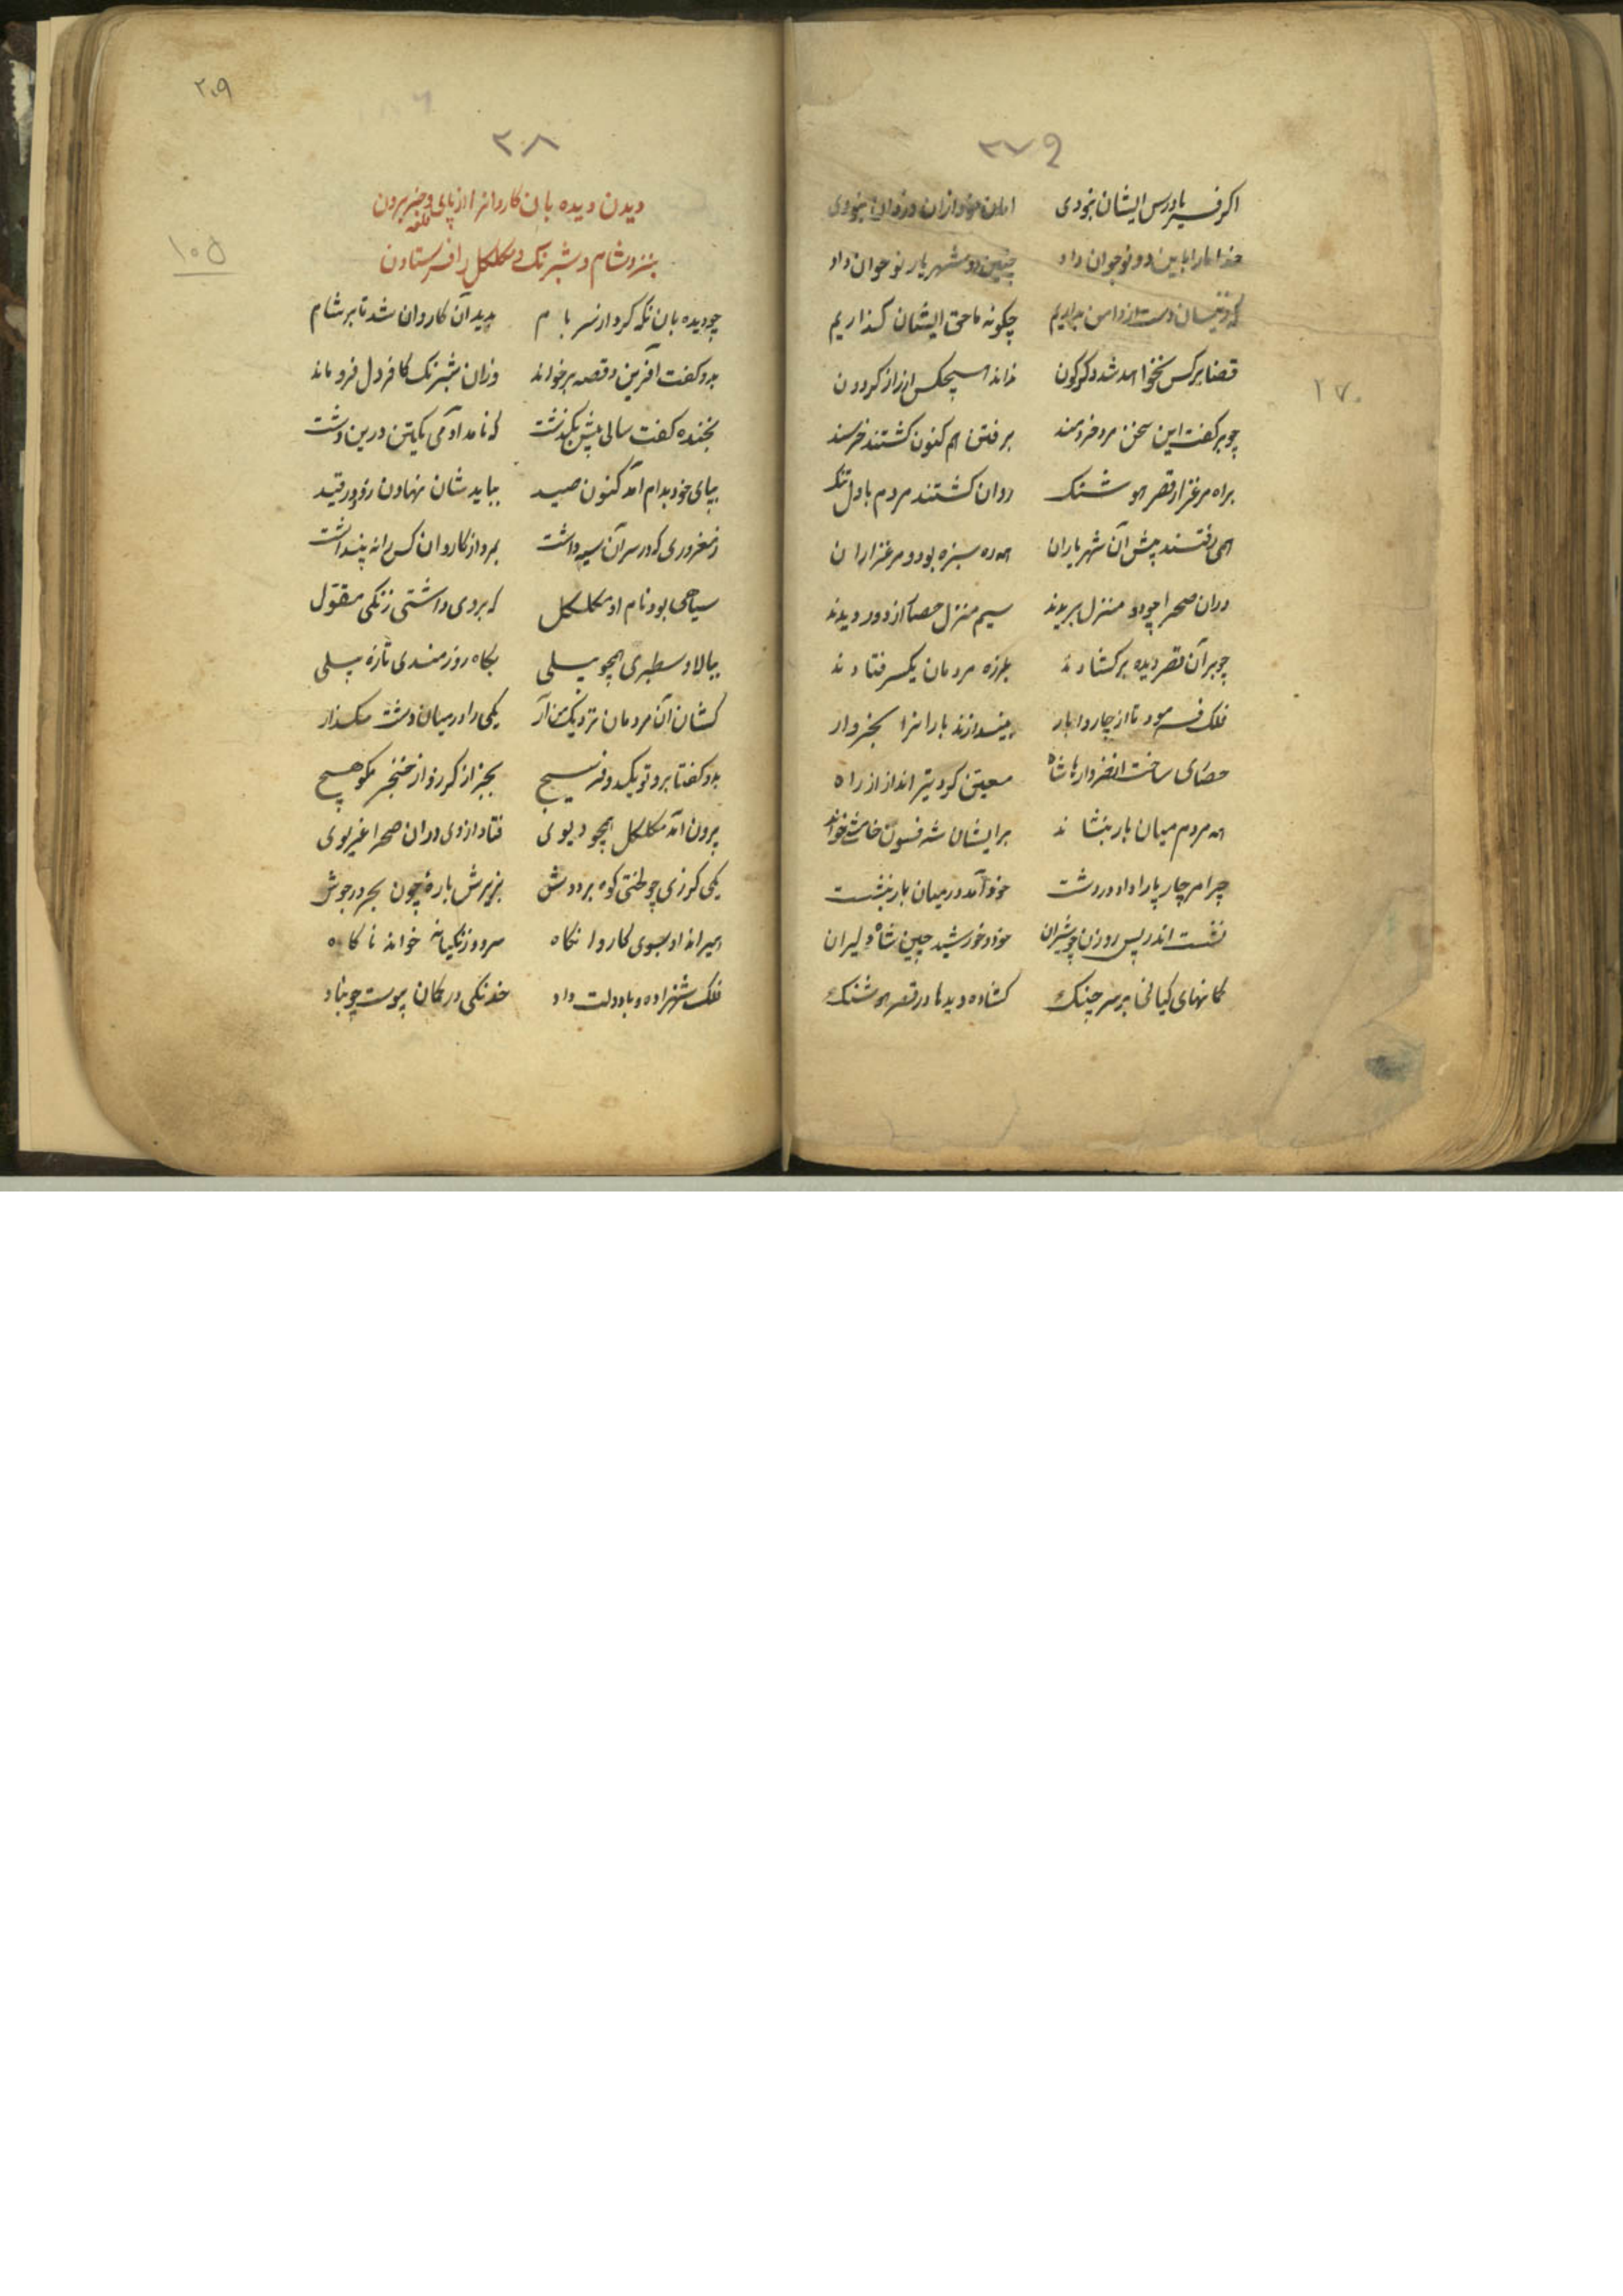 ۲۷۹
اگر فریادرس ایشان نبودی امان خود از ان دزدان نبودی
خدا ما را باین دو نوجوان داد چنین دو شهریار نوجوان داد
دست از دامن بداریم چگونه ما حق ایشان گذاریم
قضا بر کس نخواهد شد دگرگون نداند هیچکس از راز گردون
چو بر گفت این سخن مرد خردمند برفتن هم کنون گشتند خرسند
براه مرغزار قصر هوشنک روان گشتند مردم با دل تنک
همی رفتند پیش آن شهریاران همه ره سبزه بود و مرغزاران
دران صحرا چو دو منزل بریدند سیم منزل حصار از دور دیدند
چو بر آن قصر دیده بر گشادند بلرزه مردمان یکسر فتادند
فلک فرمود تا از چاروا بار بیندازند بارانرا بخروار
حصاری ساخت از خروارها شاه معین کرد تیر انداز از راه
همه مردم میان بار بنشاند بر ایشان شه فسون خامشی خواند
چرا مر چارپا را داد در دشت خود آمد در میان بار بنشست
نشست اندر پس روزن چو شیران خود و خورشید چین شاه دلیران
کمانهای کیانی بر سر چنک گشاده دیدها در قصر هوشنک
۱۷۰
۲۰۹
۲۰۸
دیدن دیده بان کاروانرا از پای قلعه و خبر بردن
بنزد شام و شبرنک و مکلکل را فرستادن
۱۰۵
چو دیده بان نگه کرد از سر بام بدید آن کاروان شد تا بر شام
بدو گفت آفرین و قصه بر خواند وزان شبرنک کافر دل فرو ماند
بخنده گفت سالی بیش بگذشت که نامد آدمی یکتن درین دشت
بپای خود بدام آمد کنون صید بباید شان نهادن زود در قید
ز مغروری که در سر آن سیه داشت بمرد از کاروان کس را نه پنداشت
سیاهی بود نام او مکلکل که بر وی داشتی زنگی مقتول
ببالا و سطبری همچو پیلی بگاه روزمندی تازه پیلی
کشان آن مردمان نزدیک من آر یکی را در میان دشت مگذار
بدو گفتا برو تو یک دو فرسیج بجز از گرز و از خنجر مگو هیچ
برون آمد مکلکل همچو دیوی فتاد از وی دران صحرا غریوی
یکی گرزی چو لختی کوه بر دوش بزیرش باره چون بحر در جوش
همیراند او بسوی کاروان گاه سرود زنگیانه خواند ناگاه
فلک شهزاده و با دولت و داد خدنگی در کمان پیوست چو باد